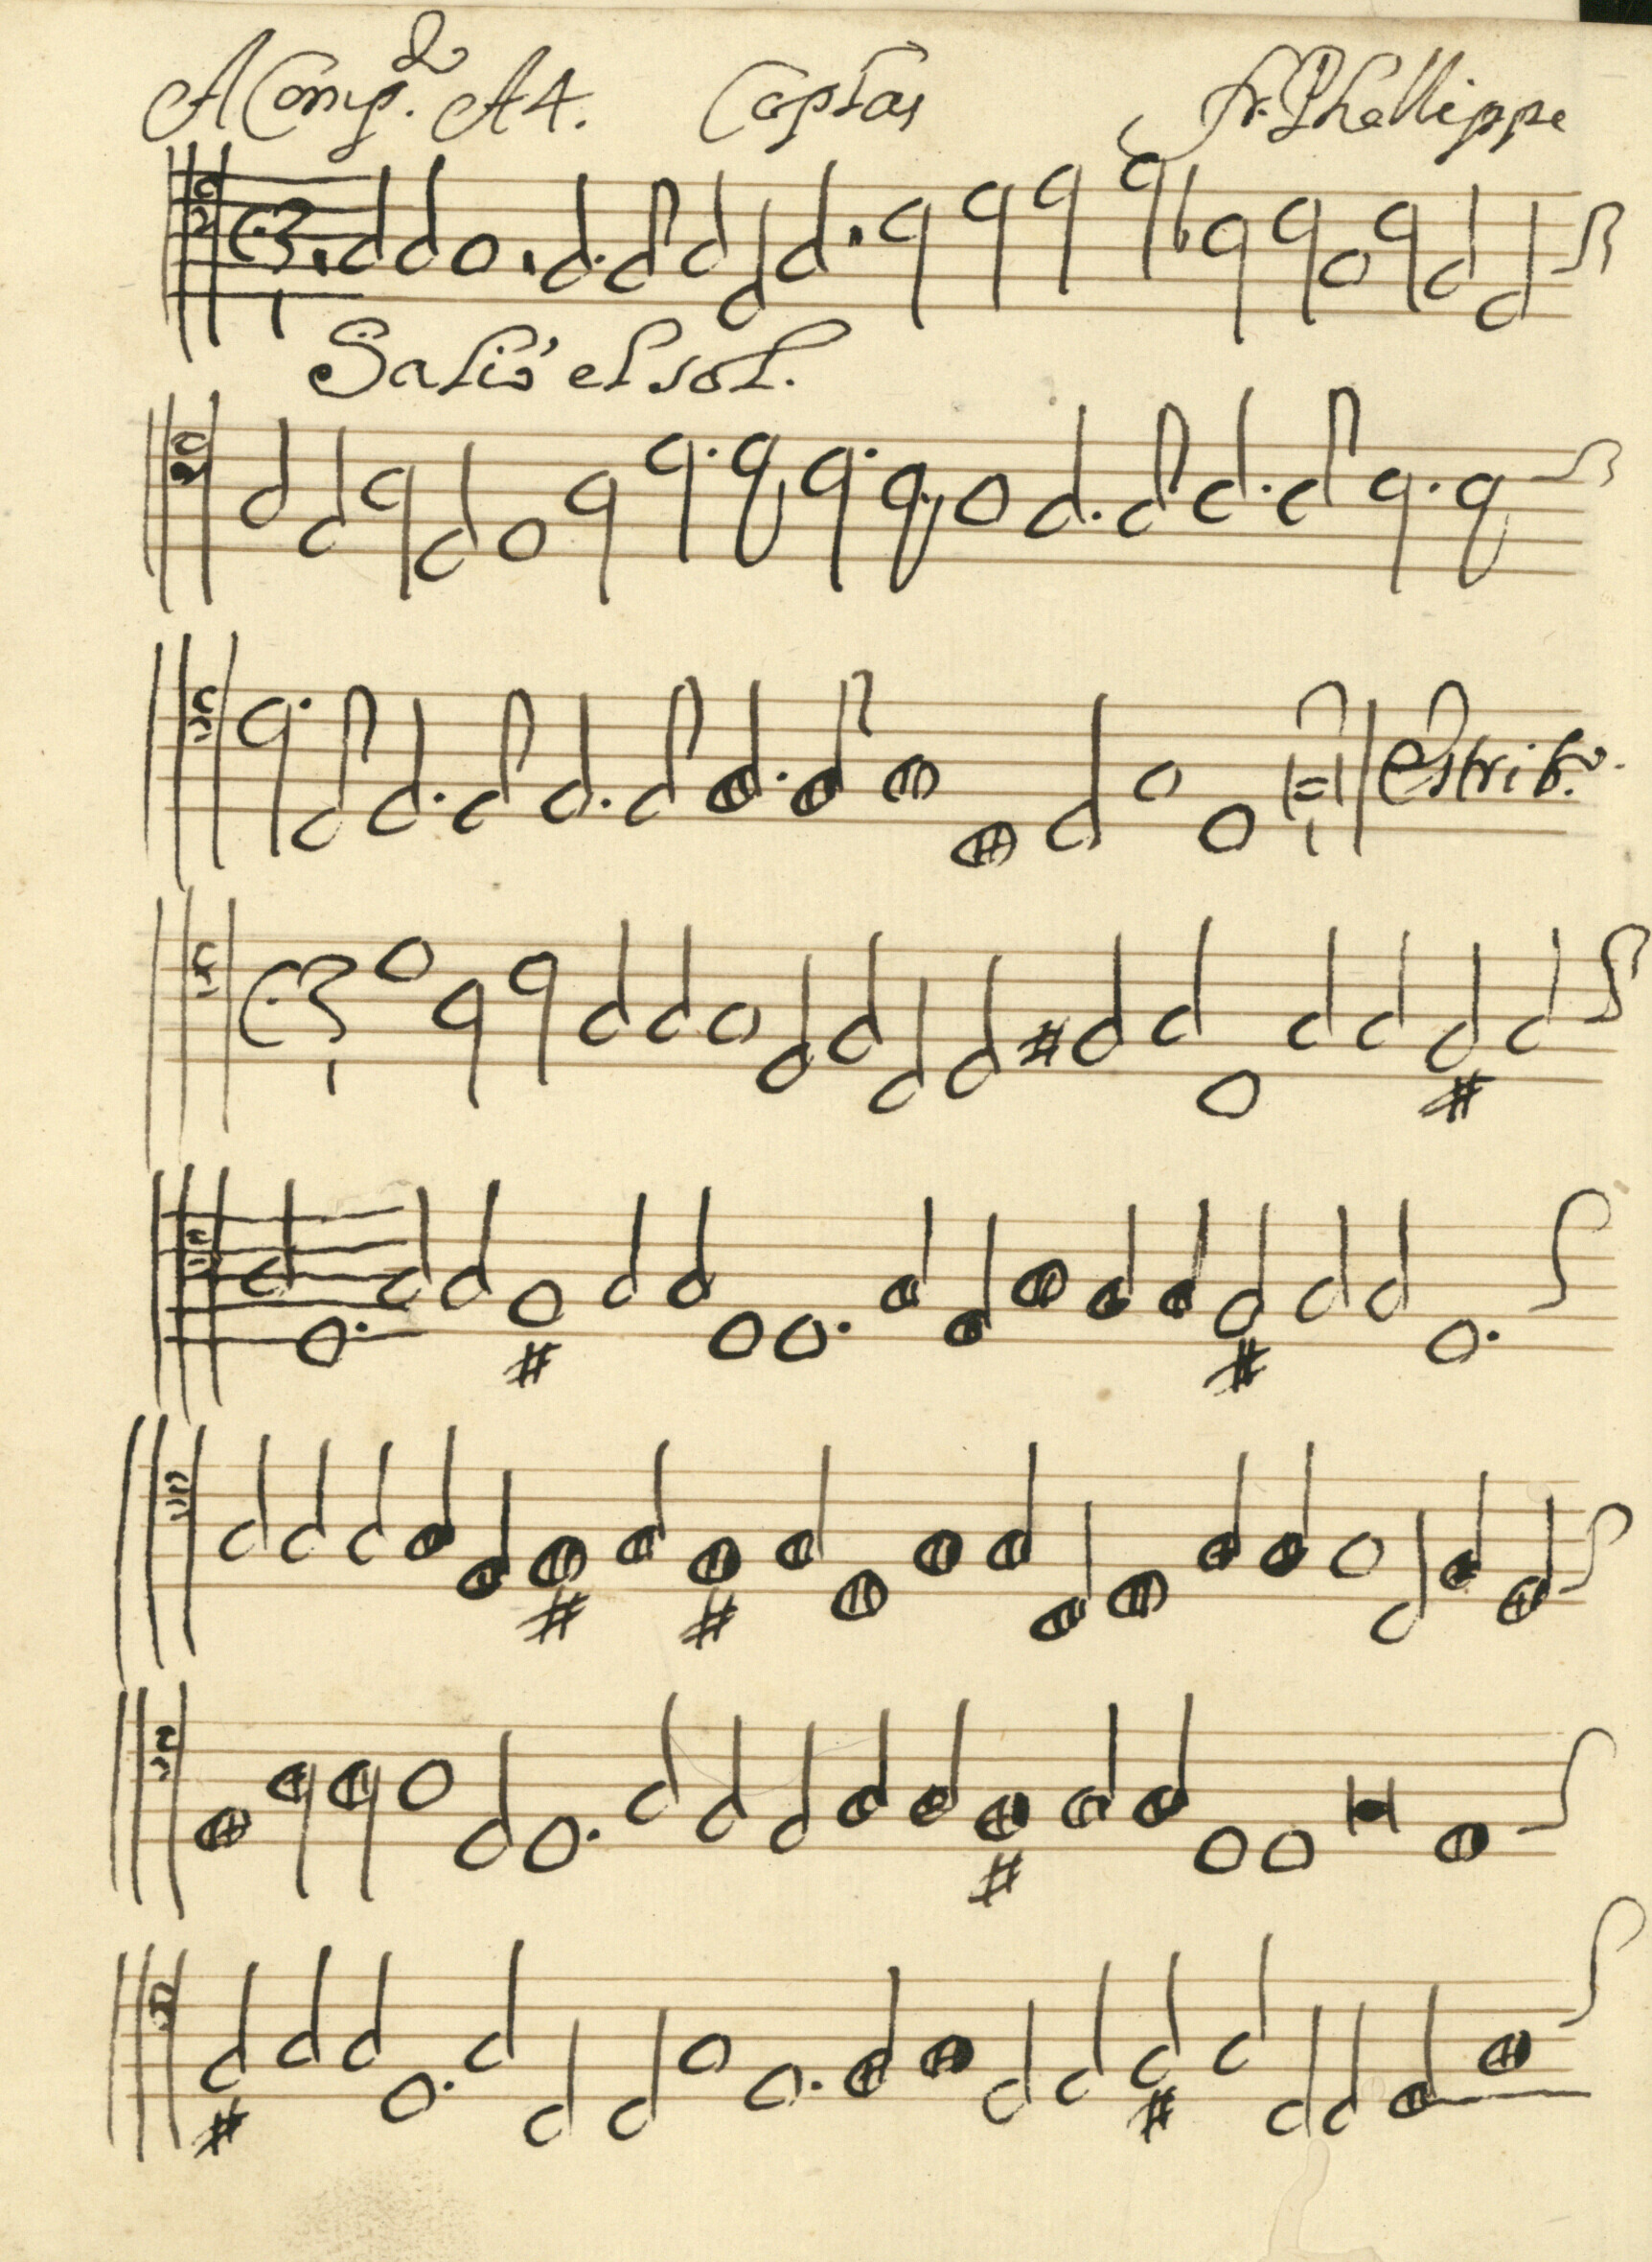 AComp.do A4. Coplas fr. Phellippe
Salió el sol.
Estrib.o